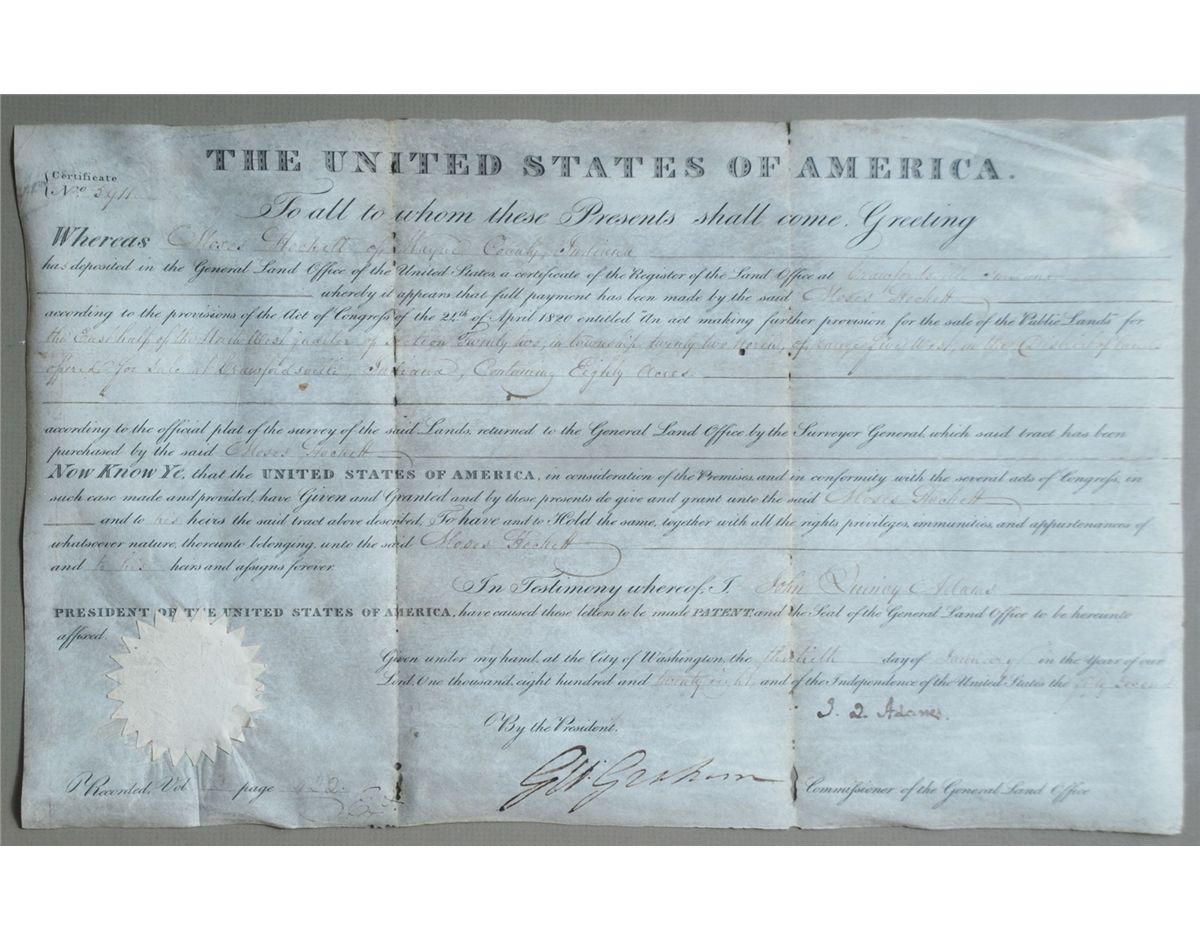 THE UNITED STATES OF AMERICA.
Certificate
No. 5911
To all to whom these Presents shall come, Greeting
Whereas Moses Hockett of Wayne County, Indiana
has deposited in the General Land Office of the United States, a certificate of the Register of the Land Office at
whereby it appears that full payment has been made by the said Moses Hockett
according to the provisions of the Act of Congress of the 24th of April 1820 entitled "An act making further provision for the sale of the Public Lands" for
the East half of the North West quarter of Section Twenty two, in township twenty two North, of range five West, in the District of
offered for sale at Crawfordsville, Indiana, Containing Eighty Acres
according to the official plat of the survey of the said Lands, returned to the General Land Office by the Surveyor General, which said tract has been
purchased by the said Moses Hockett
Now Know Ye, that the UNITED STATES OF AMERICA, in consideration of the Premises, and in conformity with the several acts of Congress, in
such case made and provided, have Given and Granted and by these presents do give and grant unto the said Moses Hockett
and to his heirs the said tract above described, To have and to Hold the same, together with all the rights privileges, immunities, and appurtenances of
whatsoever nature, thereunto belonging, unto the said Moses Hockett
and to his heirs and assigns forever.
In Testimony whereof, I, John Quincy Adams
PRESIDENT OF THE UNITED STATES OF AMERICA, have caused these letters to be made PATENT, and the Seal of the General Land Office to be hereunto
affixed.
Given under my hand, at the City of Washington, the thirtieth day of January in the Year of our
Lord, One thousand, eight hundred and twenty eight and of the Independence of the United States the fifty second
J. Q. Adams.
By the President.
G W. Graham
Commissioner of the General Land Office
Recorded, Vol page 422